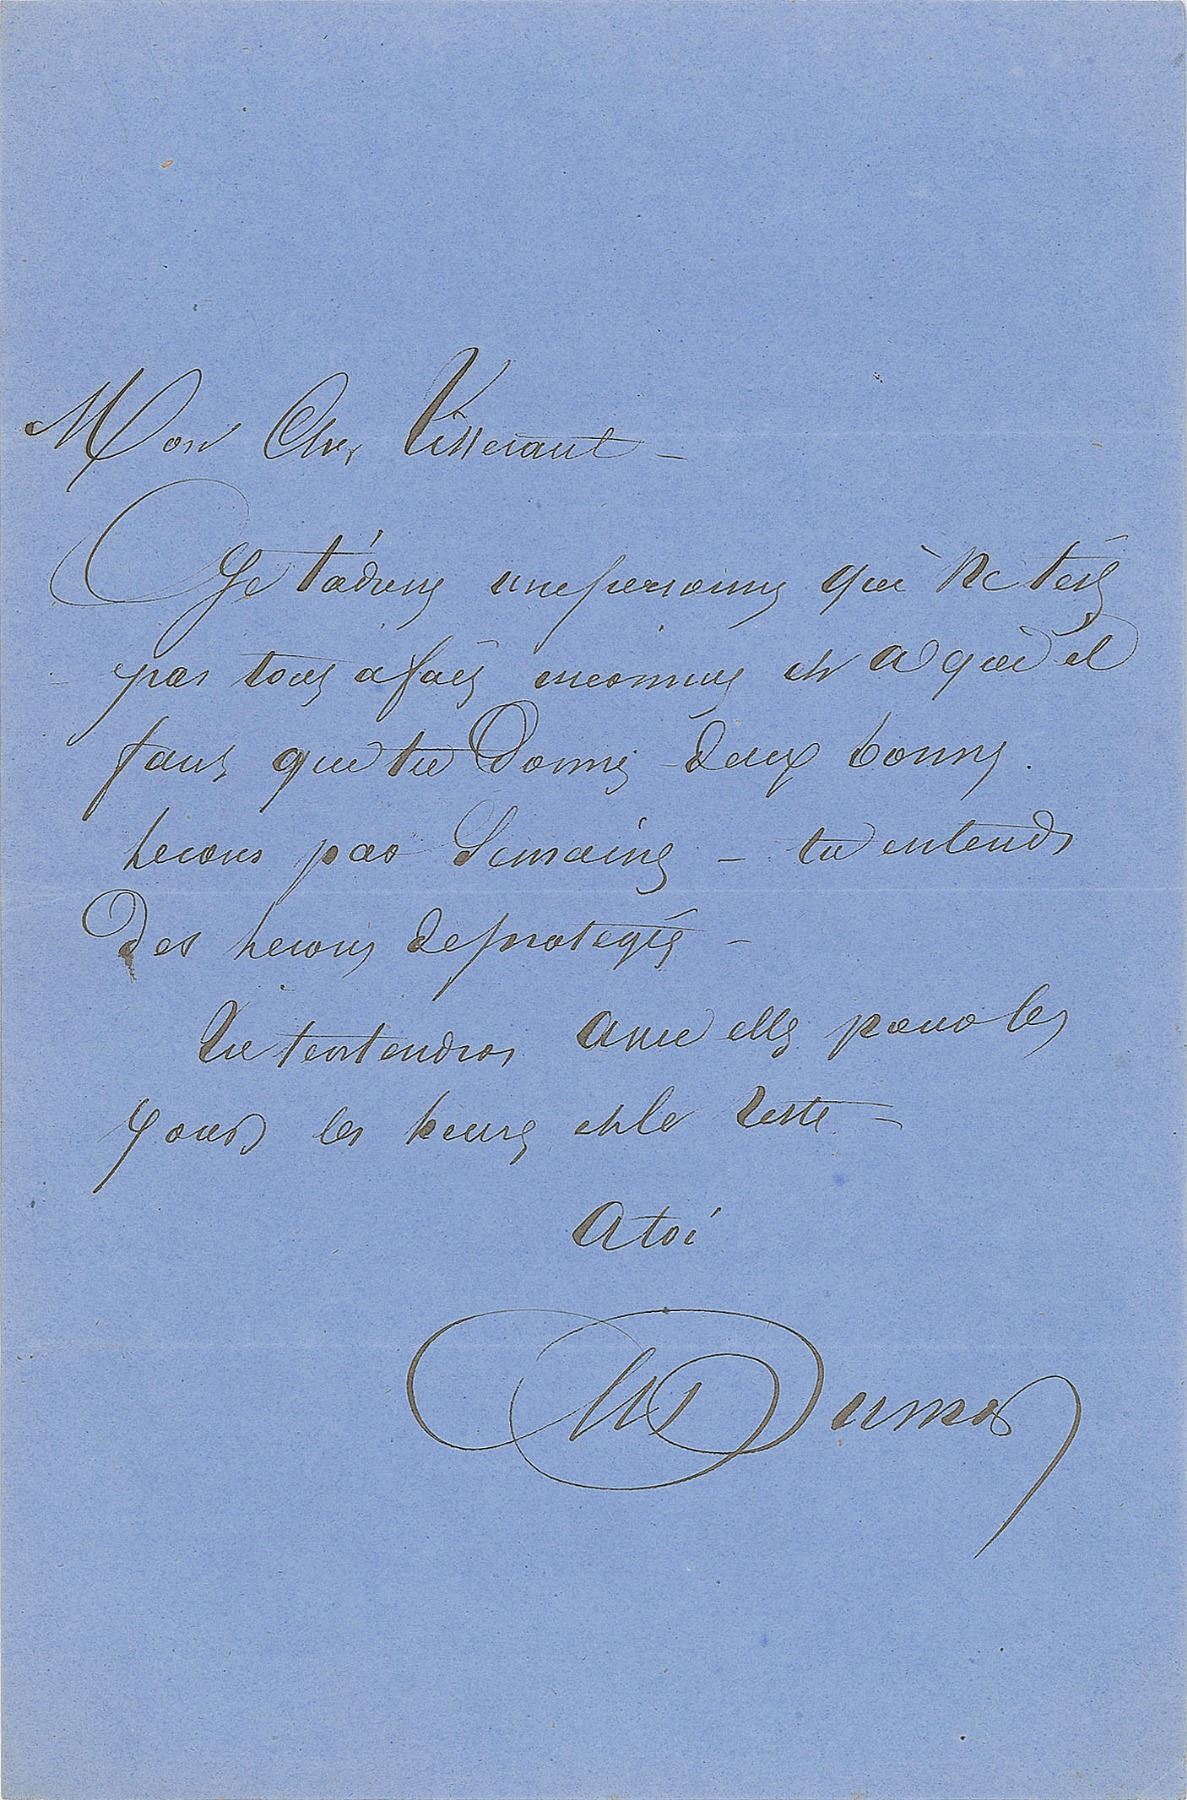 Mon Cher Tisserant –
Je t'adresse une personne qui ne t'est
pas tout a fait inconnue et a qui il
faut que tu donnes deux bonnes
lecons par Semaine – tu entends
Des lecons de protegée –
Tu t'entendras avec elle pour les
jours les heures et le reste –
A toi
Al Dumas